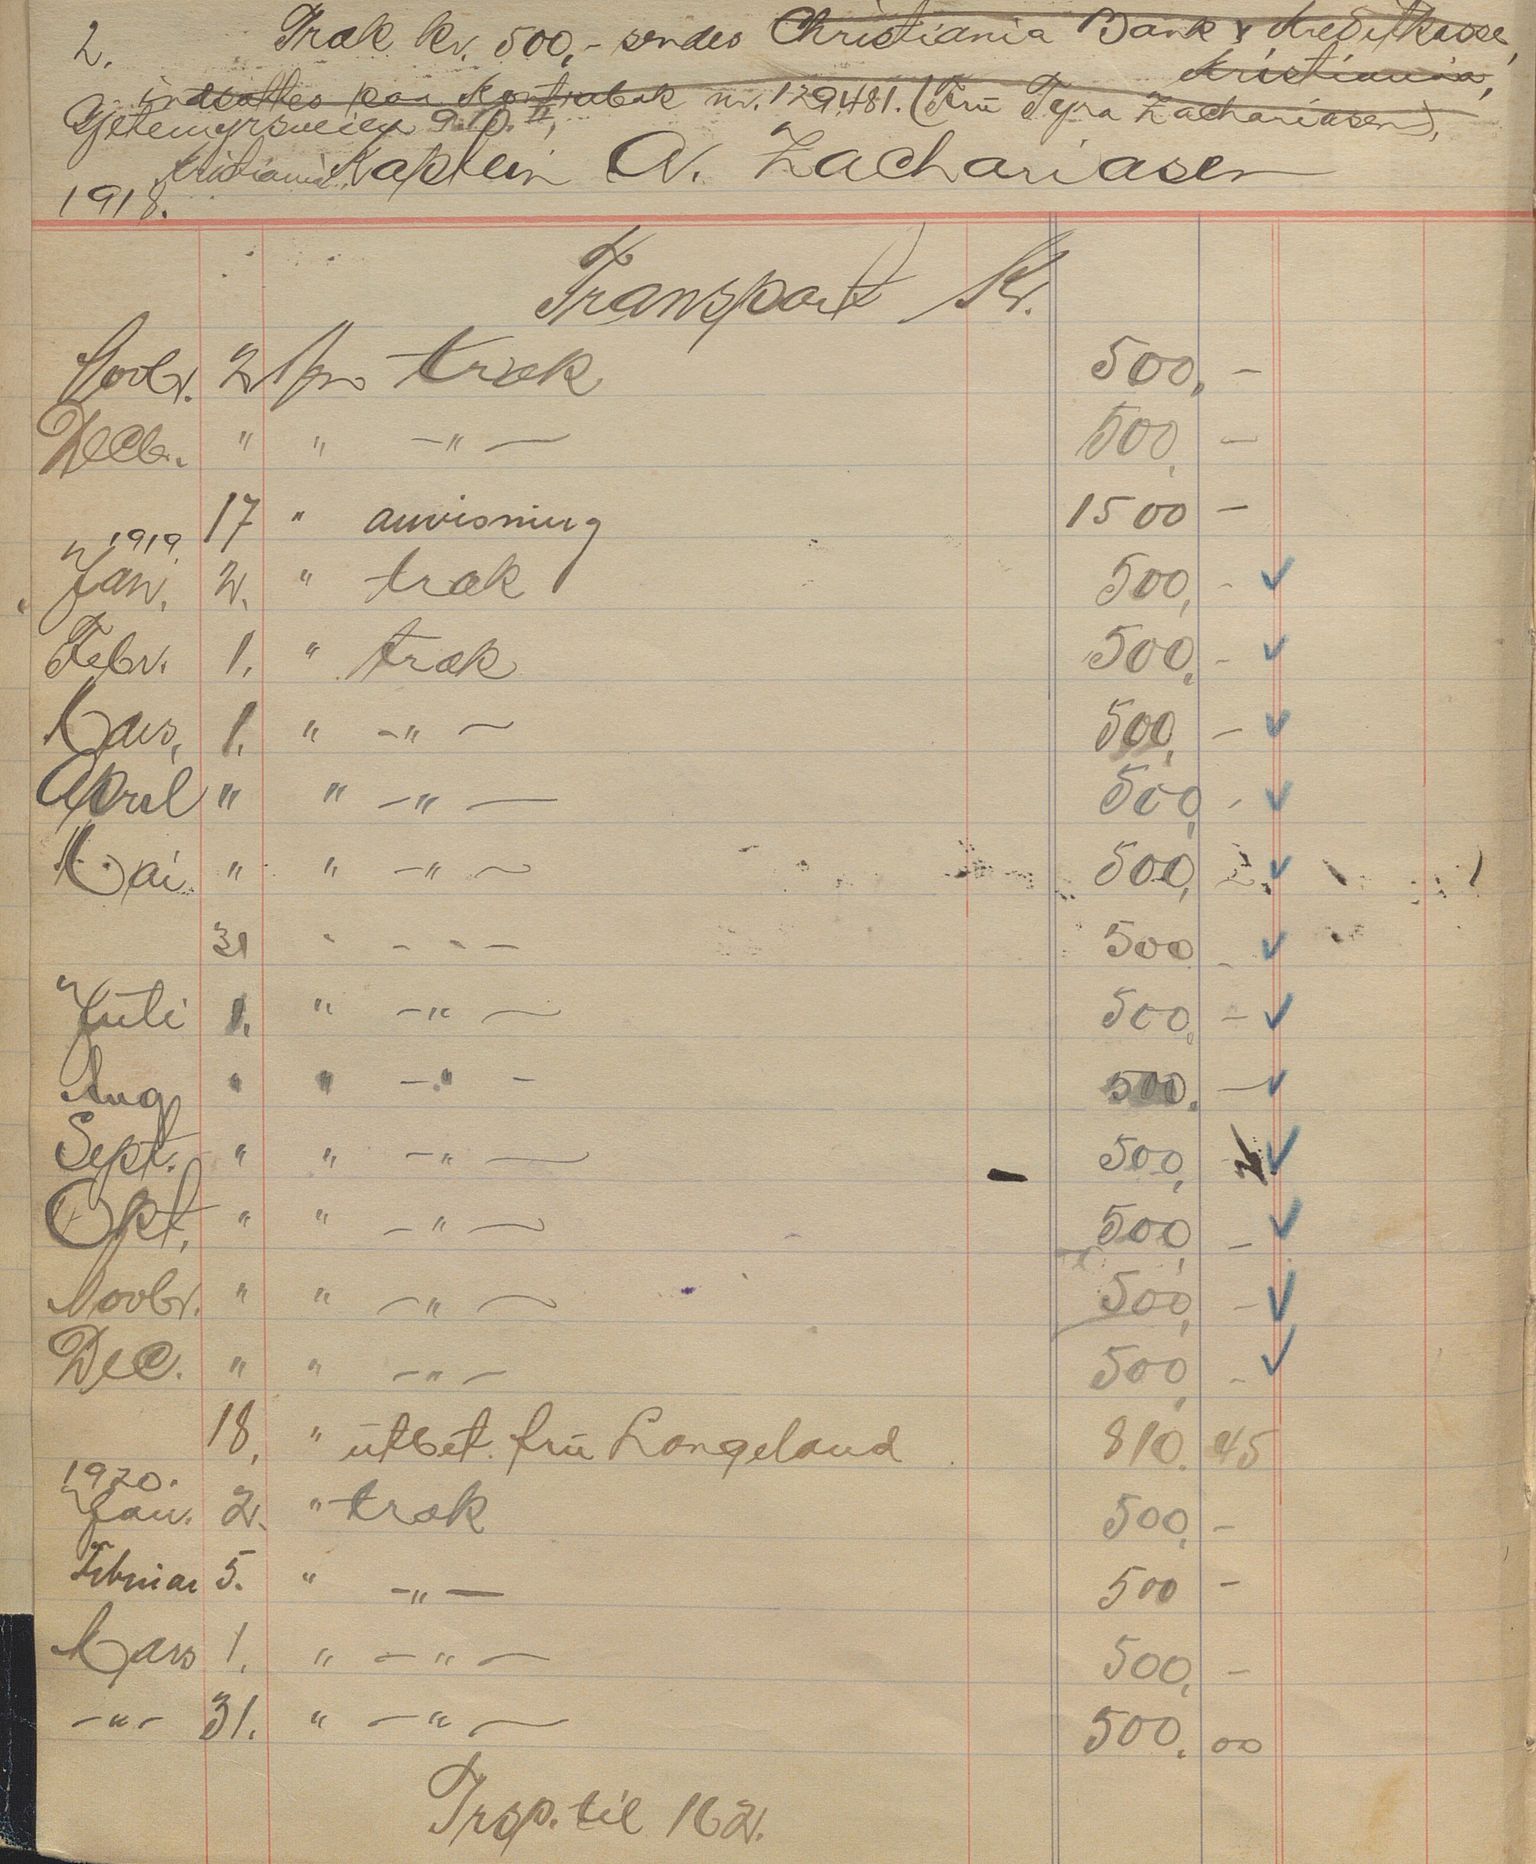 2. Træk kr. 500,- sendes Christiania Bank & Kreditkasse,
Kristiania,
indsattes paa Kontrabok nr. 129481. (Fru Tyra Zachariasen),
Gjetemyrsveien 9
Kristiania. Kaptein A. Zachariasen
1918.
Transport Kr.
Novbr. 2 pr træk 500, -
Decbr. " " -"- 500, -
17 " anvisning 1500 -
1919
Jan. 2. " træk 500, - ✓
Febr. 1. " træk 500, - ✓
Mars, 1. " -"- 500, - ✓
April " " -"- 500, - ✓
Mai " " -"- 500, - ✓
31 " -"- 500 - ✓
Juli 1. " -"- 500, - ✓
Aug " " -"- 500. - ✓
Sept. " " -"- 500, - ✓
Okt. " " -"- 500, - ✓
Novbr. " " -"- 500, - ✓
Dec. " " -"- 500, - ✓
18. " utbet. fru Langeland 810. 45
1920.
Jan. 2. " træk 500, -
Februar 5. " -"- 500 -
Mars 1. " -"- 500, -
-"- 31. " -"- 500. 00
Trsp. til 162.